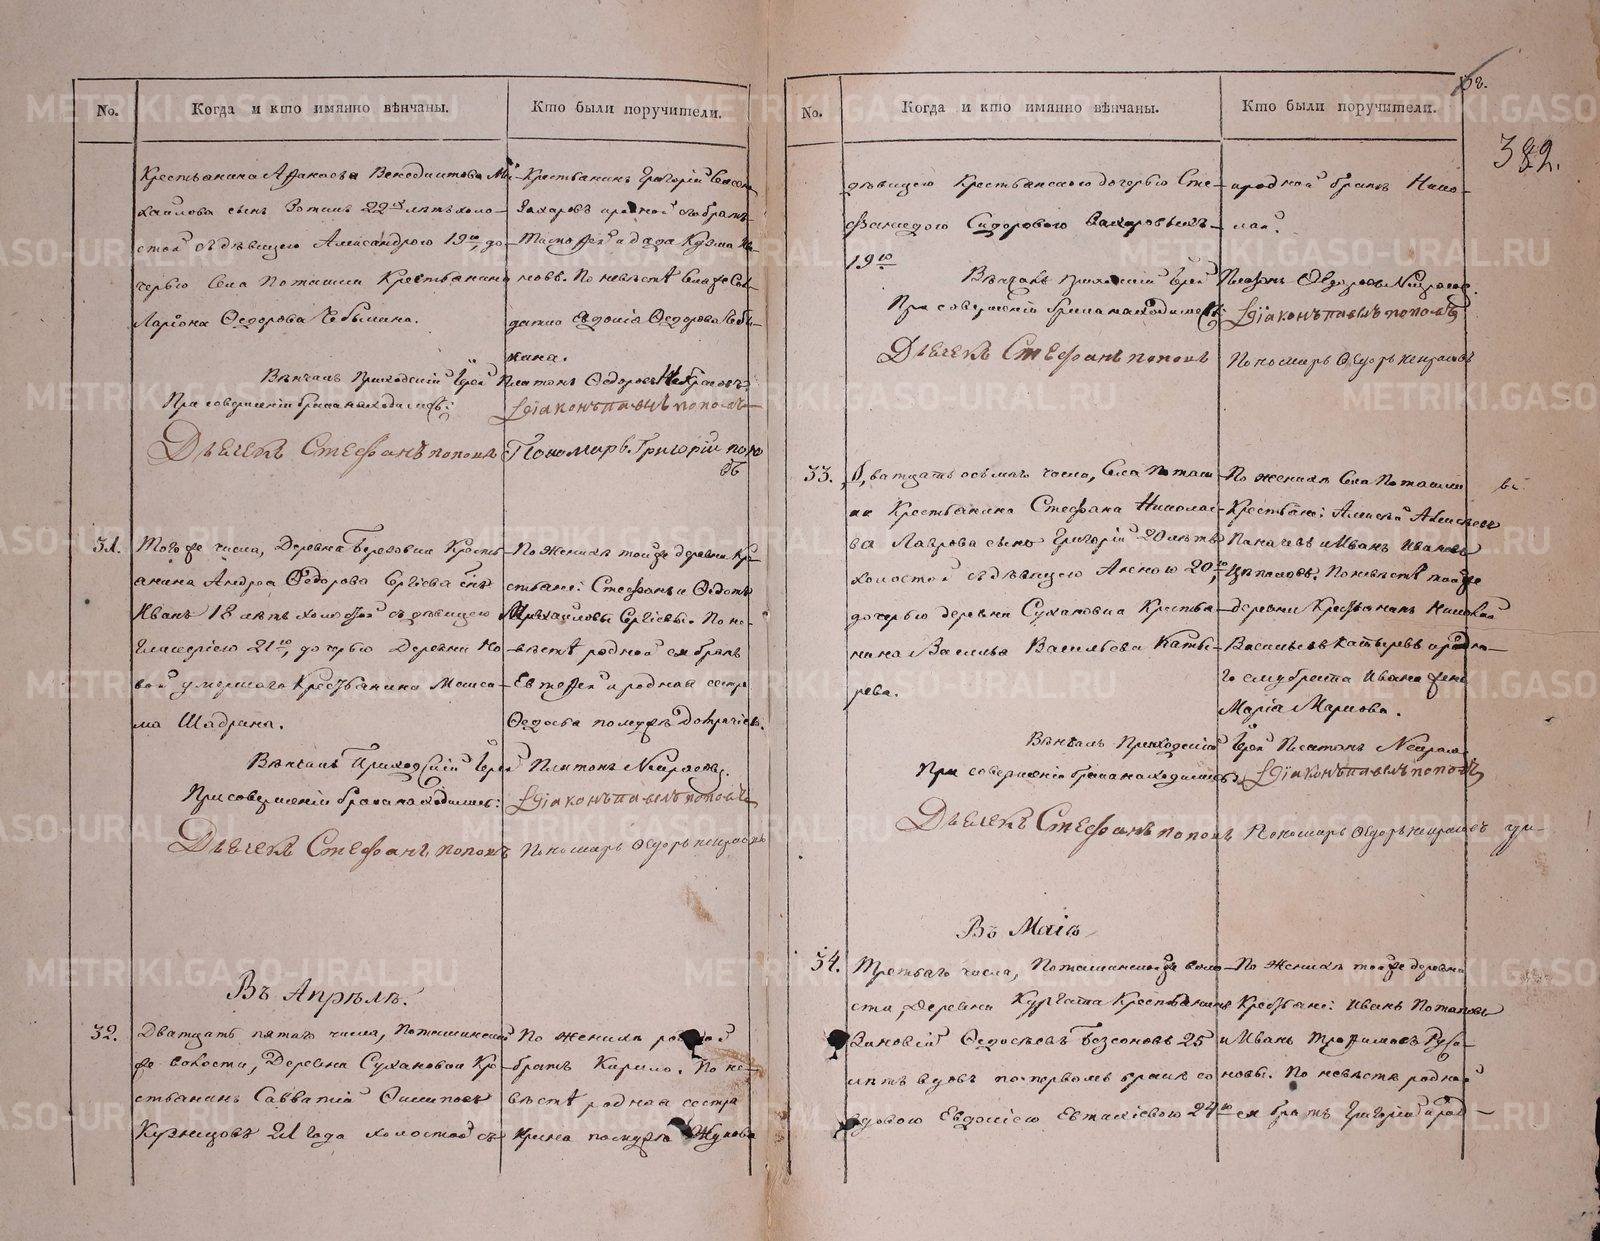 No.
Когда и кто имянно вѣнчаны.
Кто были поручители.
Крестьянина Афанасья Венедиктова Ми-
хайлова сынъ Зотикъ 22хъ лѣтъ холо-
стой съ дѣвицею Александрою 19ю, до-
черью Села Поташки Крестьянина
Ларіона Ѳедорова Чебыкина.
Крестьянинъ Григорій
Захаровъ и родной братъ
Тимофей и дядя Кузма Ива-
новъ. По невѣстѣ
датка Ѳедорова Чебы-
кина.
Вѣнчалъ Приходскій Іерей Платонъ Ѳедоровъ Некрасовъ.
При совершеніи брака находились: Діаконъ Павелъ Поповъ
Дьячекъ Стефанъ Поповъ Пономарь Григорій Поповъ
31.
Того же числа, Деревни Березовки Кресть-
янина Андрея Ѳедорова Сергѣева сынъ
Иванъ 18 лѣтъ холостой съ дѣвицею
Гликеріею 21ю, дочерью Деревни Но-
вой умершаго Крестьянина Макси-
ма Шадрина.
По женихѣ той же деревни Кре-
стьяне: Стефанъ и Ѳедотъ
Михайловы Сергѣевы. По не-
вѣстѣ родной ея братъ
Евтефей и родная сестра
Ѳедосья по мужѣ
Вѣнчалъ Приходскій Іерей Платонъ Некрасовъ.
При совершеніи брака находились: Діаконъ Павелъ Поповъ
Дьячекъ Стефанъ Поповъ Пономарь Ѳедоръ Некрасовъ
Въ Апрѣлѣ.
32.
Дватцать пятаго числа, Поташинской
же волости, Деревни Сухановки Кре-
стьянинъ Савватій Филиповъ
Кузнецовъ 21 года холостой съ
По женихѣ родной
братъ Кирило. По не-
вѣстѣ родная сестра
Ирина по мужѣ Жукова
No.
Когда и кто имянно вѣнчаны.
Кто были поручители.
382.
дѣвицею Крестьянскою дочерью Сте-
фанидою Сидоровою Захаровыхъ
19ю
и родной братъ Нико-
лай.
Вѣнчалъ Приходскій Іерей Платонъ Ѳедоровъ Некрасовъ.
При совершеніи брака находились: Діаконъ Павелъ Поповъ
Дьячекъ Стефанъ Поповъ Пономарь Ѳедоръ Некрасовъ
33.
Дватцать осьмаго числа, Села Поташ-
ки Крестьянина Стефана Николае-
ва Лаврова сынъ Григорій 20 лѣтъ
холостой съ дѣвицею Анною 20ю,
дочерью деревни Сухановки Крестья-
нина Василья Васильева Каты-
рева.
По женихѣ Села Поташки
Крестьяне: Алексѣй Алексѣевъ
Паначевъ и Иванъ Ивановъ
По невѣстѣ той же
деревни Крестьянинъ Николай
Васильевъ Катыревъ и родна-
го ему брата Ивана жена
Марія Маркова.
Вѣнчалъ Приходскій Іерей Платонъ Некрасовъ
При совершеніи брака находились: Діаконъ Павелъ Поповъ
Дьячекъ Стефанъ Поповъ Пономарь Ѳедоръ Некрасовъ
Въ Маіѣ
34.
Третьяго числа, Поташинской же воло-
сти, Деревни Кургата Крестьянинъ
Зиновій Ѳедосѣевъ Безсоновъ 25
лѣтъ вдовъ по первомъ бракѣ со
вдовою Евдокіею Евтихіевою 24ю
По женихѣ той же деревни
Крестьяне: Иванъ Потаповъ
и Иванъ Трофимовъ Руса-
новы. По невѣстѣ родной
ея братъ Григорій и род-
METRIKI.GASO-URAL.RU